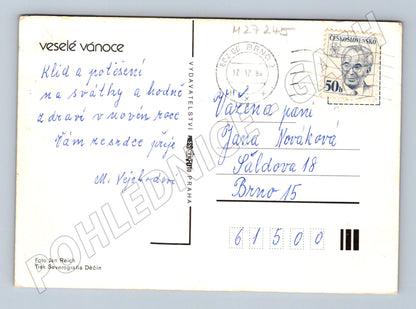 M27245
veselé vánoce
Klid a potěšení
na svátky a hodně
zdraví v novém roce
Vám ze srdce přeje
M.
Foto Jan Reich
Tisk Severografia Děčín
VYDAVATELSTVÍ
PRAHA
BRNO
ČESKOSLOVENSKO
50h
Vážená paní
Jana Nováková
Šáldova 18
Brno 15
61500
POHLEDNICE